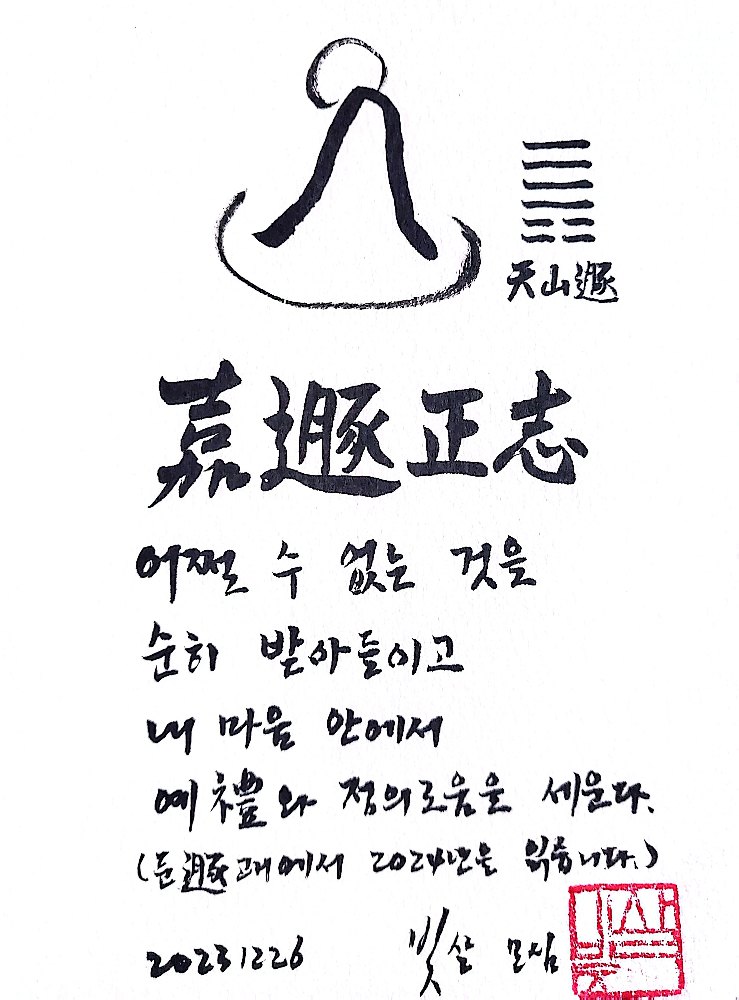 天山遯
嘉遯正志
어쩔 수 없는 것을
순히 받아들이고
내 마음 안에서
예禮와 정의로움을 세운다.
(둔遯괘에서 2024년을 읽습니다.)
20231226 빛살 모심